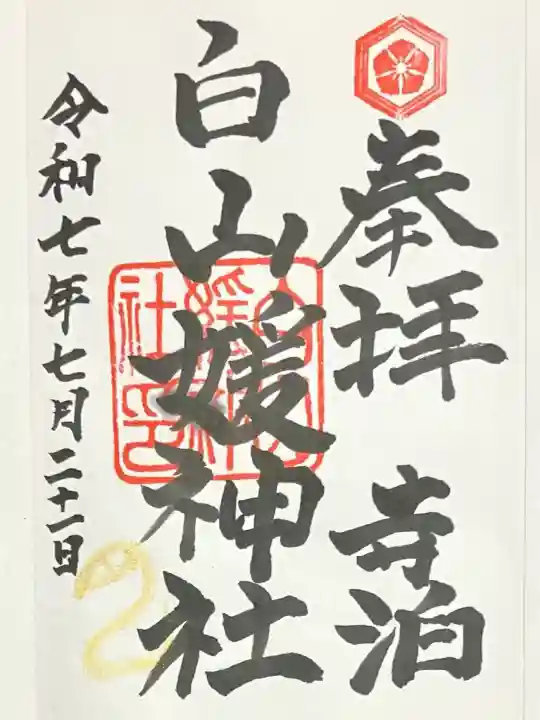 奉拝 寺泊
白山媛神社
令和七年七月二十一日